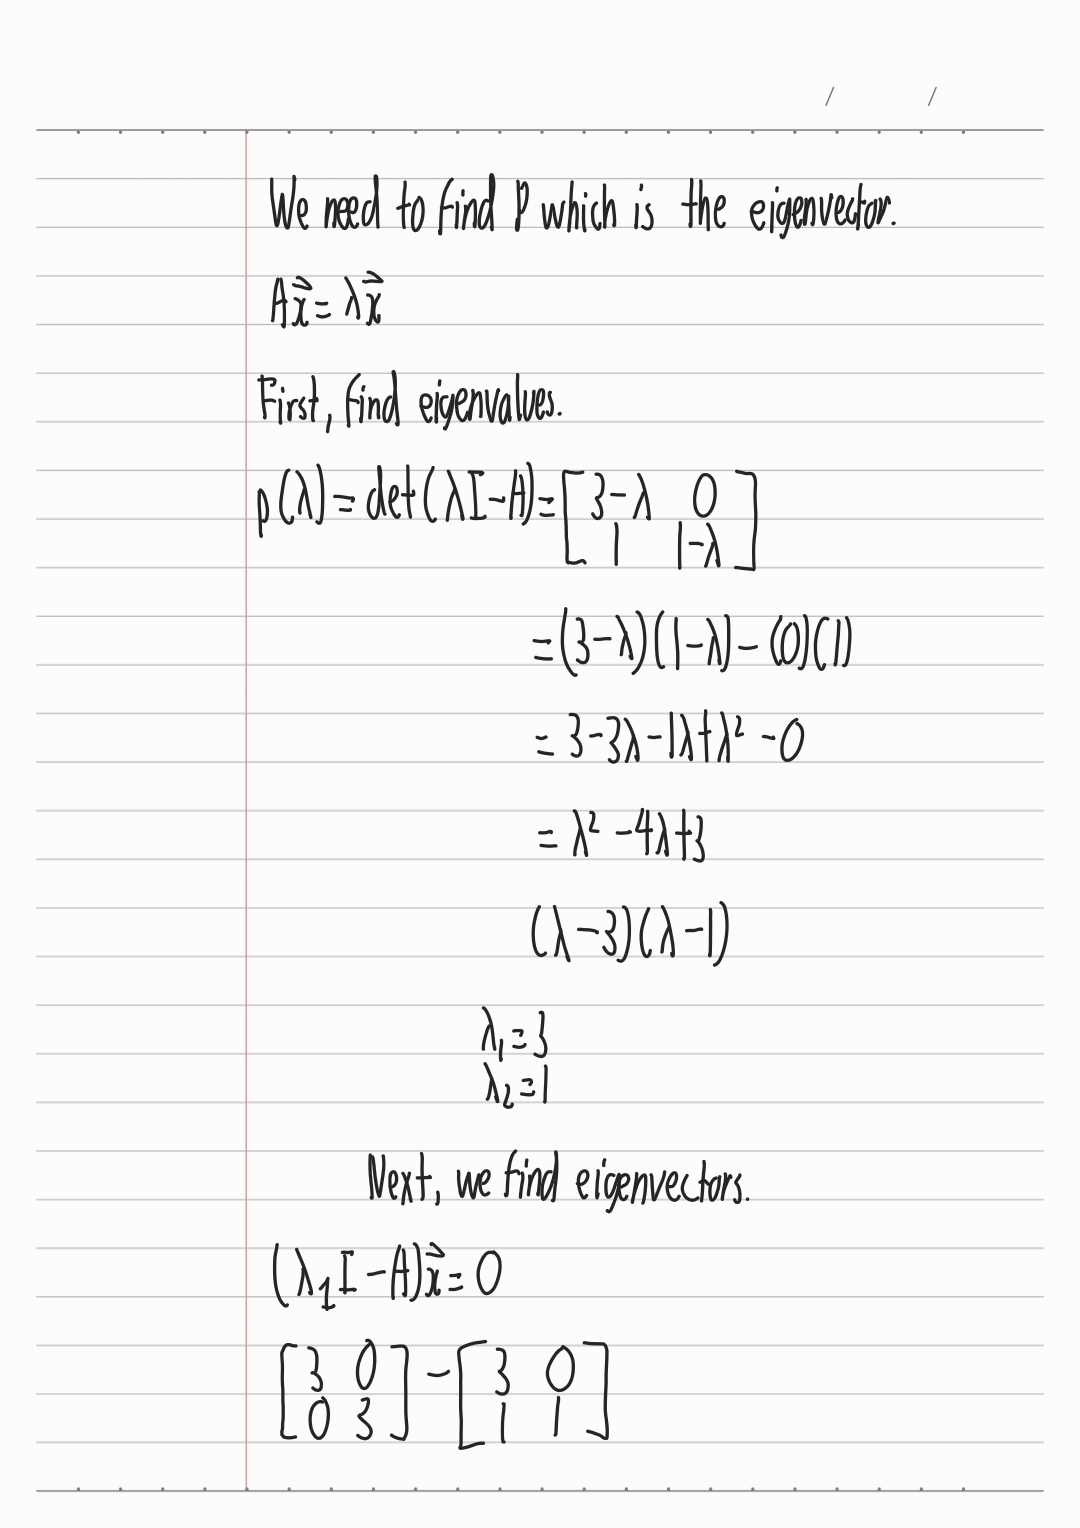 / /
We need to find P which is the eigenvector.
A x⃗ = λ x⃗
First, find eigenvalues.
p(λ) = det(λI-A) = [3-λ 0
1 1-λ]
= (3-λ)(1-λ) - (0)(1)
= 3-3λ-1λ+λ² -0
= λ² -4λ+3
(λ-3)(λ-1)
λ₁=3
λ₂=1
Next, we find eigenvectors.
(λ₁I-A)x⃗=0
[3 0] - [3 0]
[0 3] [1 1]